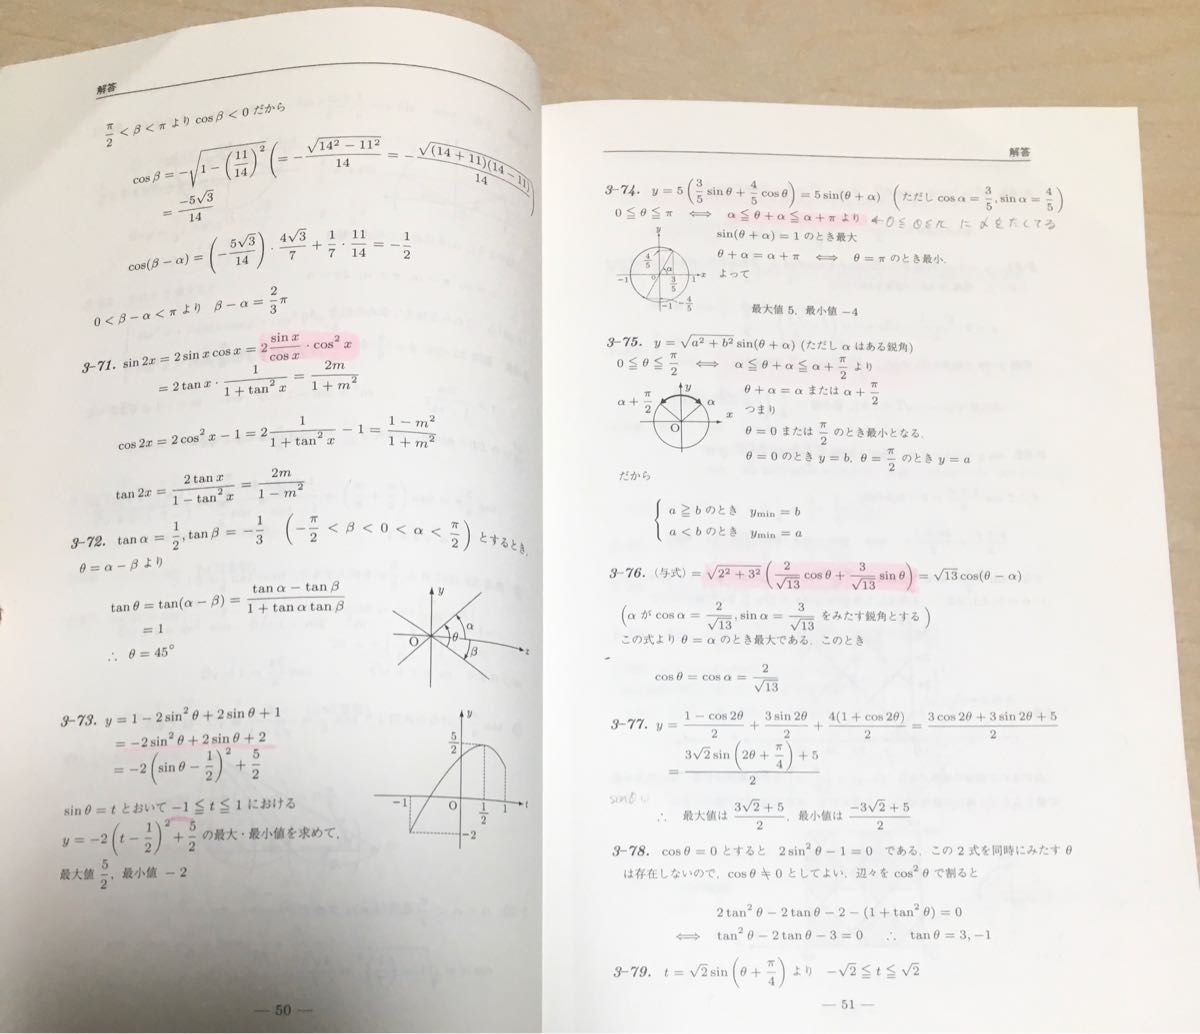 解答
π/2 < β < π より cos β < 0 だから
cos β = −√(1 − (11/14)²) (= −√(14² − 11²)/14 = −√((14 + 11)(14 − 11))/14)
= −5√3/14
cos(β − α) = (−5√3/14) · 4√3/7 + 1/7 · 11/14 = −1/2
0 < β − α < π より β − α = 2/3 π
3-71. sin 2x = 2 sin x cos x = 2 sin x/cos x · cos² x
= 2 tan x · 1/(1 + tan² x) = 2m/(1 + m²)
cos 2x = 2 cos² x − 1 = 2 1/(1 + tan² x) − 1 = (1 − m²)/(1 + m²)
tan 2x = 2 tan x/(1 − tan² x) = 2m/(1 − m²)
3-72. tan α = 1/2, tan β = −1/3 (−π/2 < β < 0 < α < π/2) とするとき,
θ = α − β より
tan θ = tan(α − β) = (tan α − tan β)/(1 + tan α tan β)
= 1
∴ θ = 45°
y
α
O
θ
β
x
3-73. y = 1 − 2 sin² θ + 2 sin θ + 1
= −2 sin² θ + 2 sin θ + 2
= −2 (sin θ − 1/2)² + 5/2
sin θ = t とおいて −1 ≦ t ≦ 1 における
y = −2 (t − 1/2)² + 5/2 の最大・最小値を求めて,
最大値 5/2, 最小値 −2
y
5/2
−1
O
1/2
1
t
−2
— 50 —
解答
3-74. y = 5 (3/5 sin θ + 4/5 cos θ) = 5 sin(θ + α) (ただし cos α = 3/5, sin α = 4/5)
0 ≦ θ ≦ π ⟺ α ≦ θ + α ≦ α + π より ← 0 ≦ θ ≦ π に αをたしてる
sin(θ + α) = 1 のとき最大
θ + α = α + π ⟺ θ = π のとき最小.
よって
y
4/5
α
−1
O
3/5
1
x
−1
−4/5
最大値 5, 最小値 −4
3-75. y = √(a² + b²) sin(θ + α) (ただし α はある鋭角)
0 ≦ θ ≦ π/2 ⟺ α ≦ θ + α ≦ α + π/2 より
θ + α = α または α + π/2
つまり
θ = 0 または π/2 のとき最小となる.
θ = 0 のとき y = b, θ = π/2 のとき y = a
α + π/2
y
α
x
O
だから
{ a ≧ b のとき ymin = b
a < b のとき ymin = a
3-76. (与式) = √(2² + 3²) (2/√13 cos θ + 3/√13 sin θ) = √13 cos(θ − α)
(α が cos α = 2/√13, sin α = 3/√13 をみたす鋭角とする)
この式より θ = α のとき最大である. このとき
cos θ = cos α = 2/√13
3-77. y = (1 − cos 2θ)/2 + 3 sin 2θ/2 + 4(1 + cos 2θ)/2 = (3 cos 2θ + 3 sin 2θ + 5)/2
= (3√2 sin (2θ + π/4) + 5)/2
∴ 最大値は (3√2 + 5)/2, 最小値は (−3√2 + 5)/2
3-78. cos θ = 0 とすると 2 sin² θ − 1 = 0 である. この 2 式を同時にみたす θ
は存在しないので, cos θ ≠ 0 としてよい. 辺々を cos² θ で割ると
2 tan² θ − 2 tan θ − 2 − (1 + tan² θ) = 0
⟺ tan² θ − 2 tan θ − 3 = 0 ∴ tan θ = 3, −1
3-79. t = √2 sin (θ + π/4) より −√2 ≦ t ≦ √2
— 51 —